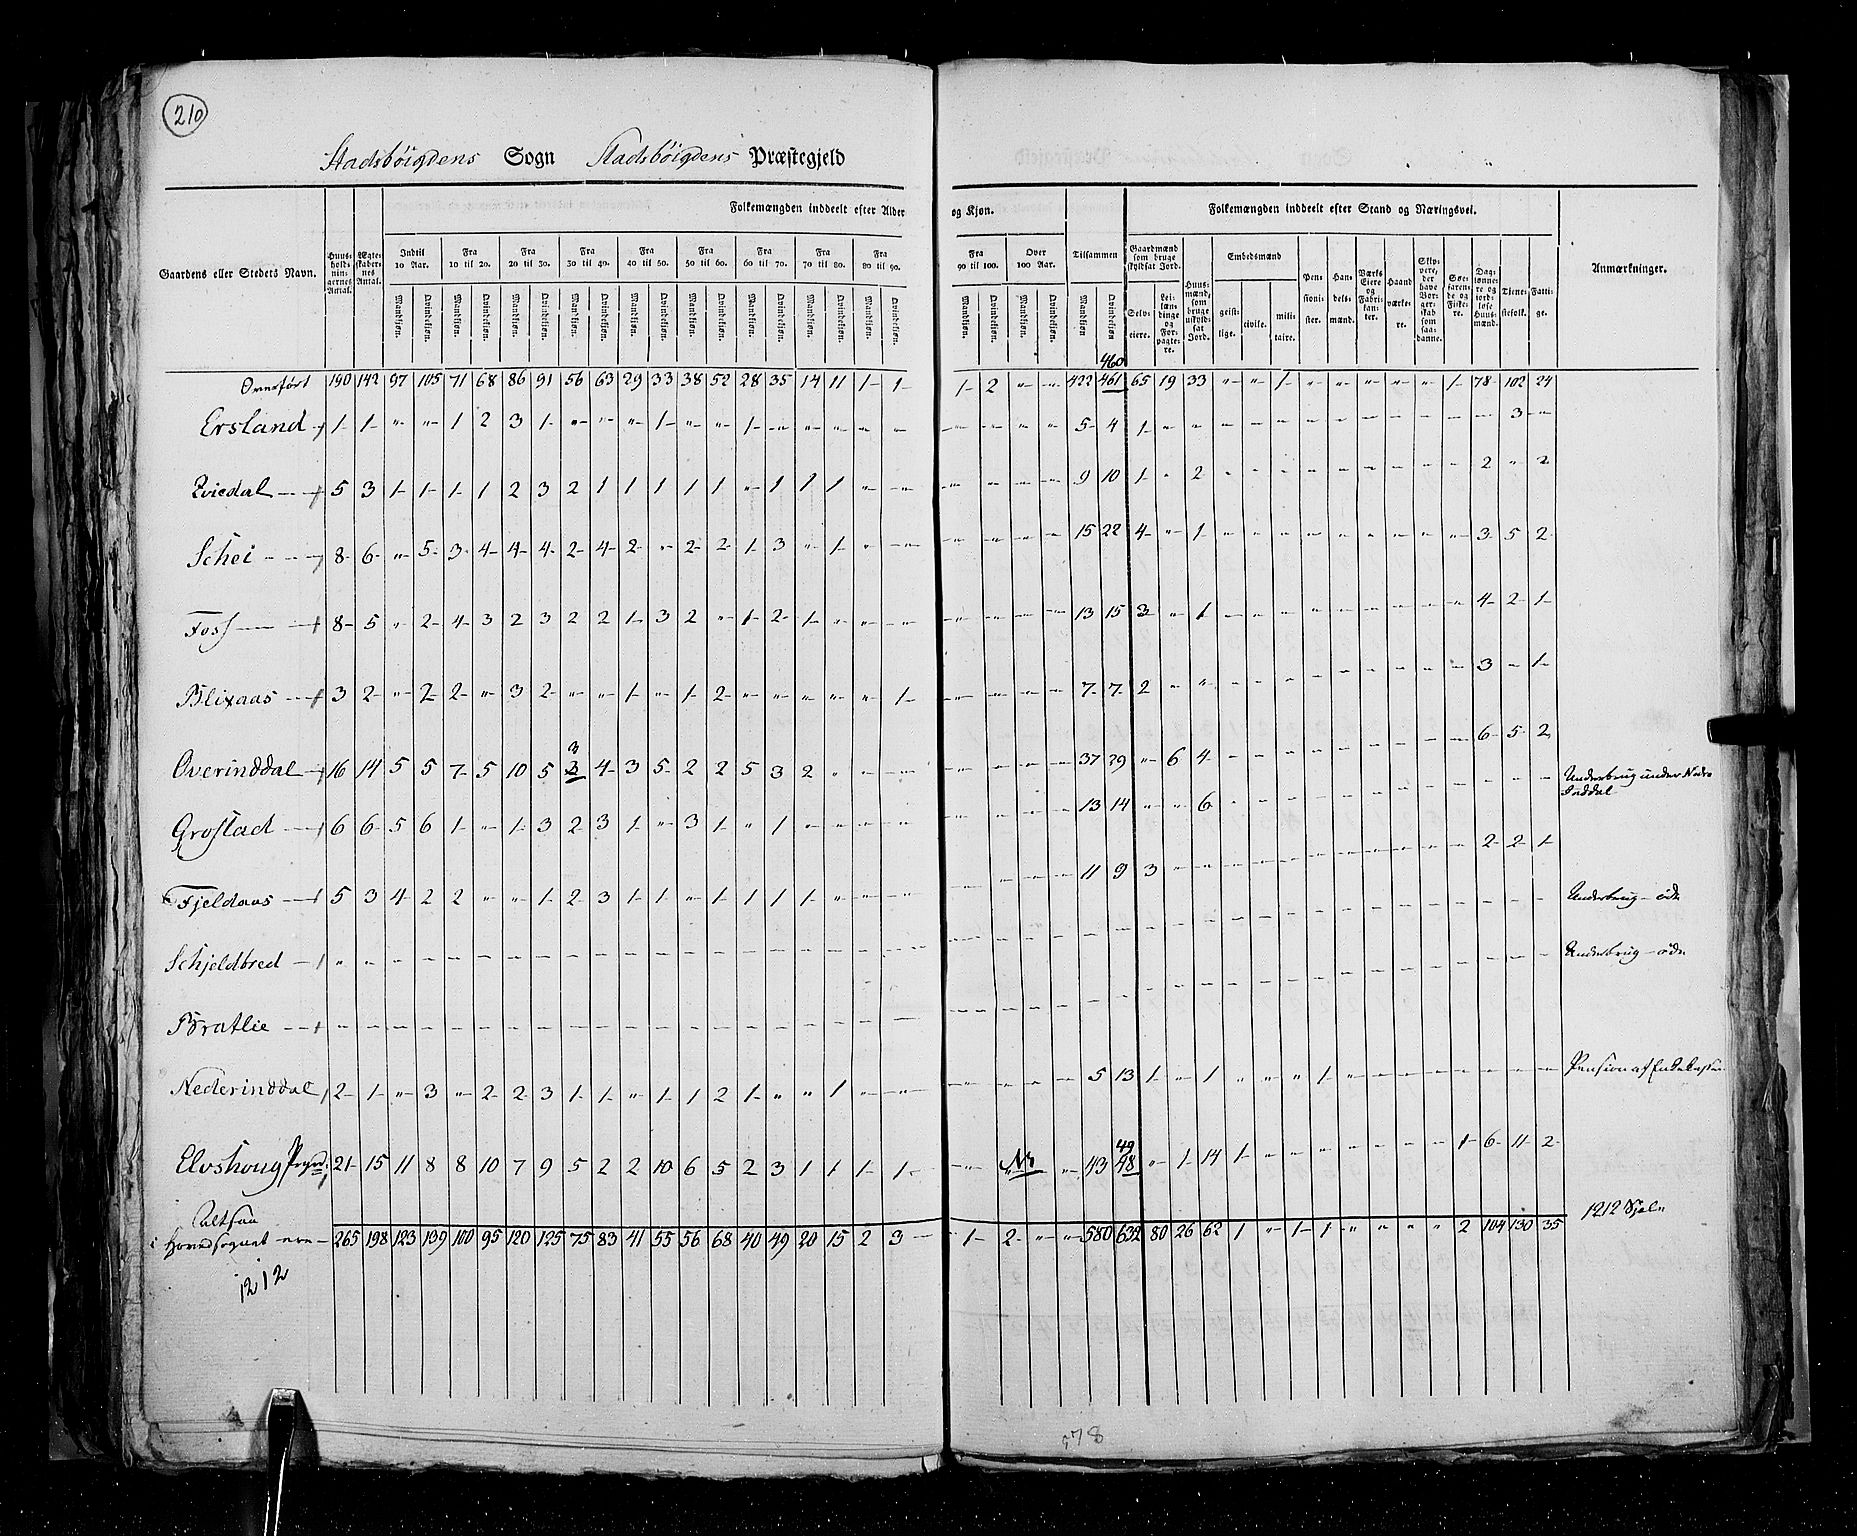 210
Stadsbøigdens Sogn Stadsbøigdens Præstegjeld
Gaardens eller Stedets Navn.
Huus-holdnin-gernes Antal.
Ægte-skaber-nes Antal.
Folkemængden inddeelt efter Alder og Kjøn.
Indtil 10 Aar. Fra 10 til 20. Fra 20 til 30. Fra 30 til 40. Fra 40 til 50. Fra 50 til 60. Fra 60 til 70. Fra 70 til 80. Fra 80 til 90. Fra 90 til 100. Over 100 Aar. Tilsammen
Mandkjøn. Qvindekjøn.
Folkemængden inddeelt efter Stand og Næringsvei.
Gaardmænd som bruge skyldsat Jord.
Selv-eiere. Lei-læn-dinge og For-pagte-re.
Huus-mænd, som bruge uskyld-sat Jord.
Embedsmænd
geist-lige. civile. mili-taire.
Pen-sioni-ster. Han-dels-mænd. Værks Eiere og Fabri-kanter. Haand værke-re. Skip-pere, der have Bor-ger-skab som saa-danne. Søe-farende og Fiske-re. Dag-lønne-re og jord-løse Huus-mænd. Tjene-stefolk. Fatti-ge.
Anmærkninger.
460
Overført 190 142 97 105 71 68 86 91 56 63 29 33 38 52 28 35 14 11 1 1 1 2 " " 422 461 65 19 33 " " 1 " " " " " 1 78 102 24
Ersland 1 1 " " 1 2 3 1 " " " 1 " " 1 " " " " " 5 4 1 3
Qviedal 5 3 1 1 1 1 2 3 2 1 1 1 1 1 " 1 1 1 " " 9 10 1 " 2 2 " 2
Schei 8 6 " 5 3 4 4 4 2 4 2 " 2 2 1 3 " 1 " " 15 22 4 " 1 3 5 2
Foss 8 5 " 2 4 3 2 3 2 2 1 3 2 " 1 2 1 " " " 13 15 3 " 1 4 2 1
Blixaas 3 2 " 2 2 " 3 2 " " 1 " 1 2 " " " " " 1 7 7 2 " " 3 " 1
3
Overinddal 16 14 5 5 7 5 10 5 3 4 3 5 2 2 5 3 2 " " " 37 29 " 6 4 6 5 2
Underbrug under Nedre Inddal
Grostad 6 6 5 6 1 " 1 3 2 3 1 " 3 1 " 1 " " " " 13 14 " " 6
Fjeldaas 5 3 4 2 2 " " 1 2 3 1 1 " 1 1 1 1 " " " 11 9 3 2 2 1
Underbrug - øde
Schjeldbred
Underbrug - øde
Bratlie
Nederinddal 2 1 " 3 " 2 2 3 1 1 " 1 1 2 1 " " 1 5 13 1 " 1 " " " 1
Pension af Enkekassen
49
Elvshoug Prgd. 21 15 11 8 8 10 7 9 5 2 2 10 6 5 2 3 1 1 1 1 43 48 " 1 14 1 1 6 11 2
Altsaa
i Hovedsognet 265 198 123 139 100 95 120 125 75 83 41 55 56 68 40 49 20 15 2 3 1 2 " " 580 632 80 26 62 1 " 1 1 " " " " 2 104 130 35
1212 Sjæle
1212
978